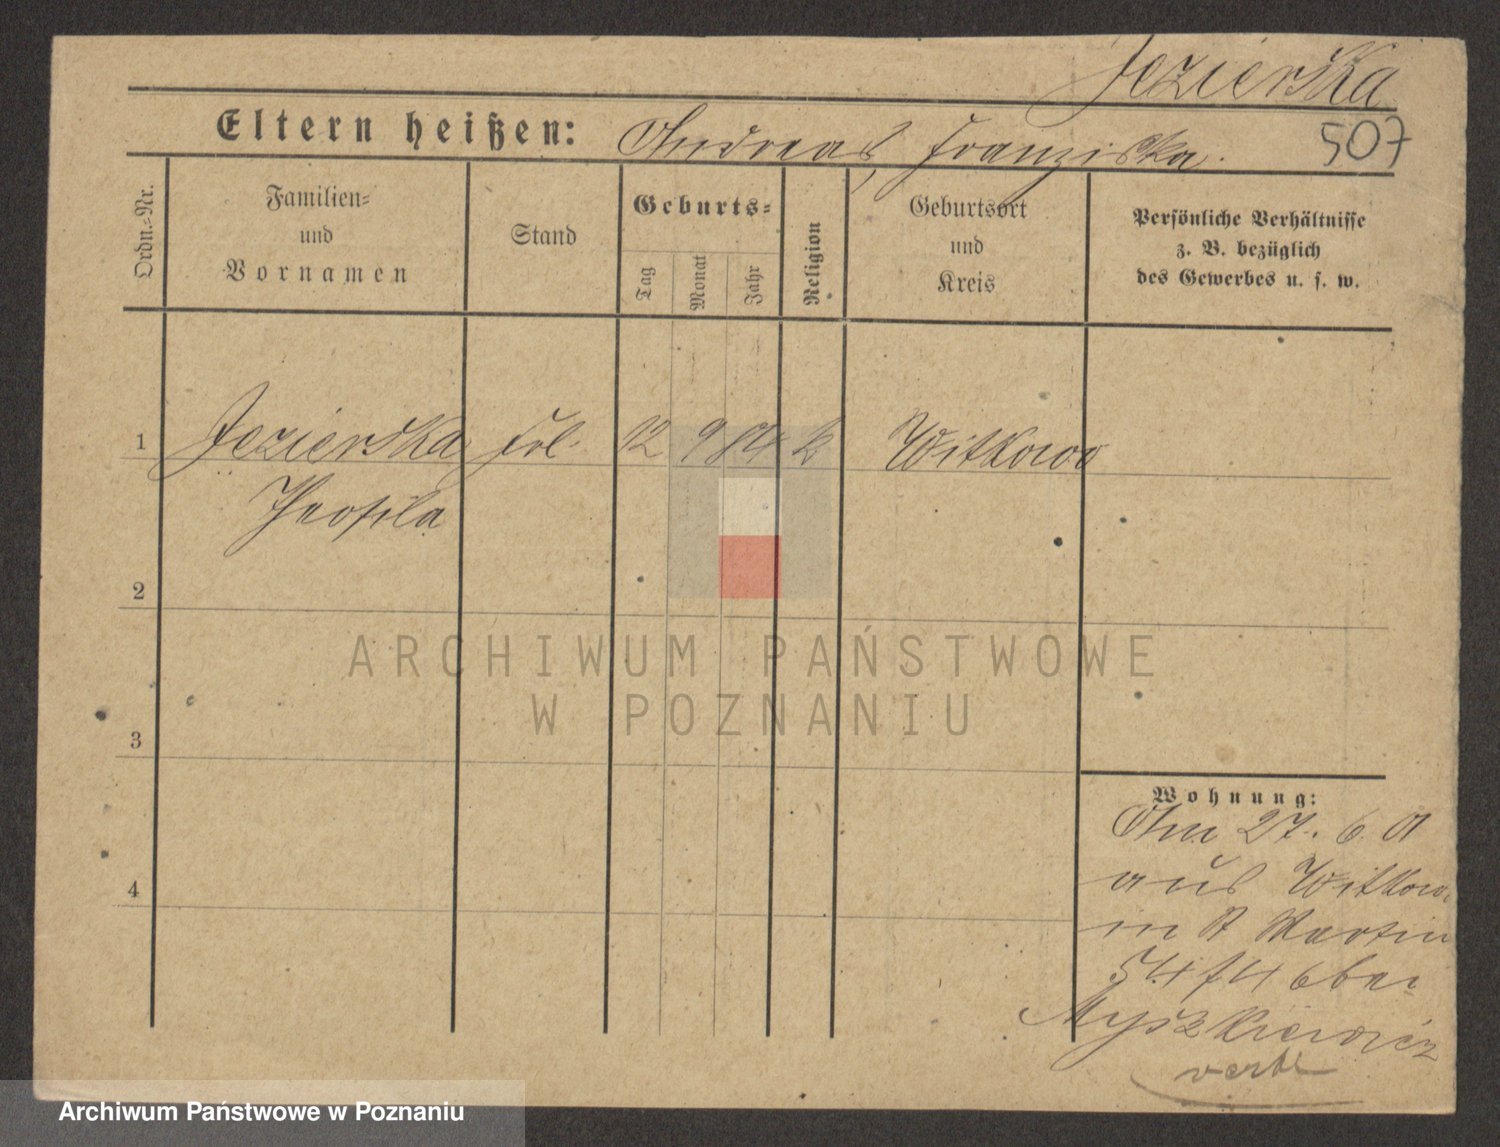 Jezierska
Eltern heißen: Andreas, Franziska.
507
Ordn.-Nr.
Familien-
und
Vornamen
Stand
Geburts-
Tag
Monat
Jahr
Religion
Geburtsort
und
Kreis
Persönliche Verhältnisse
z. B. bezüglich
des Gewerbes u. s. w.
1 Jezierska Frl. 12 9 84 k Witkowo
Theofila
2
ARCHIWUM PAŃSTWOWE
W POZNANIU
3
Wohnung:
Am 27. 6. 01
4 aus Witkowo
in St Martin
bei
Myszkiewicz
Archiwum Państwowe w Poznaniu